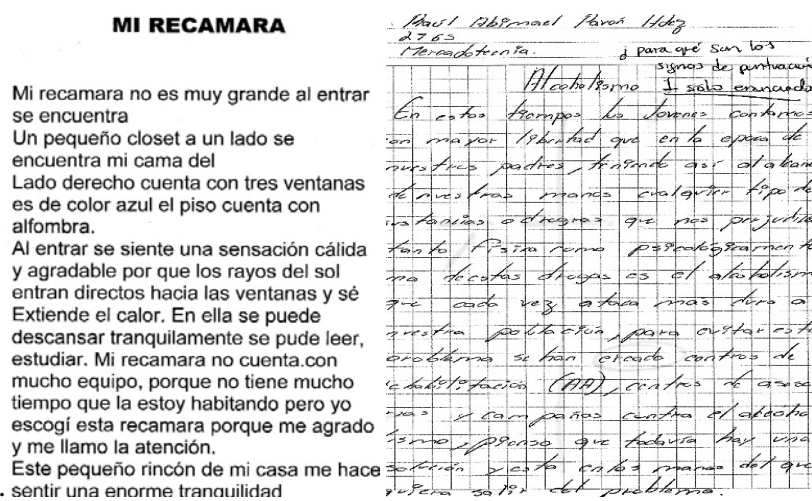 MI RECAMARA
Mi recamara no es muy grande al entrar
se encuentra
Un pequeño closet a un lado se
encuentra mi cama del
Lado derecho cuenta con tres ventanas
es de color azul el piso cuenta con
alfombra.
Al entrar se siente una sensación cálida
y agradable por que los rayos del sol
entran directos hacia las ventanas y sé
Extiende el calor. En ella se puede
descansar tranquilamente se pude leer,
estudiar. Mi recamara no cuenta.con
mucho equipo, porque no tiene mucho
tiempo que la estoy habitando pero yo
escogí esta recamara porque me agrado
y me llamo la atención.
Este pequeño rincón de mi casa me hace
. sentir una enorme tranquilidad
Abimael Pavón Hdez
2765
Mercadotecnia.
¿para qué son los
signos de puntuación
1 solo enunciado
Alcoholismo
En estos tiempos los Jovenes contamos
mayor libertad que en la epoca de
nuestros padres, teniendo asi al alcan
de nuestras manos cualquier tipo de
o drogas que nos perjudica
tanto fisica como psicologicamente
de estas drogas es el alcoholism
que cada vez ataca mas duro a
nuestra poblacion, para evitar este
problema se han creado centros de
(AA), centros de aseso
y campañas contra el alcoho
ismo, pienso que todavia hay una
solución y esta en las manos del que
quiera salir del problema.